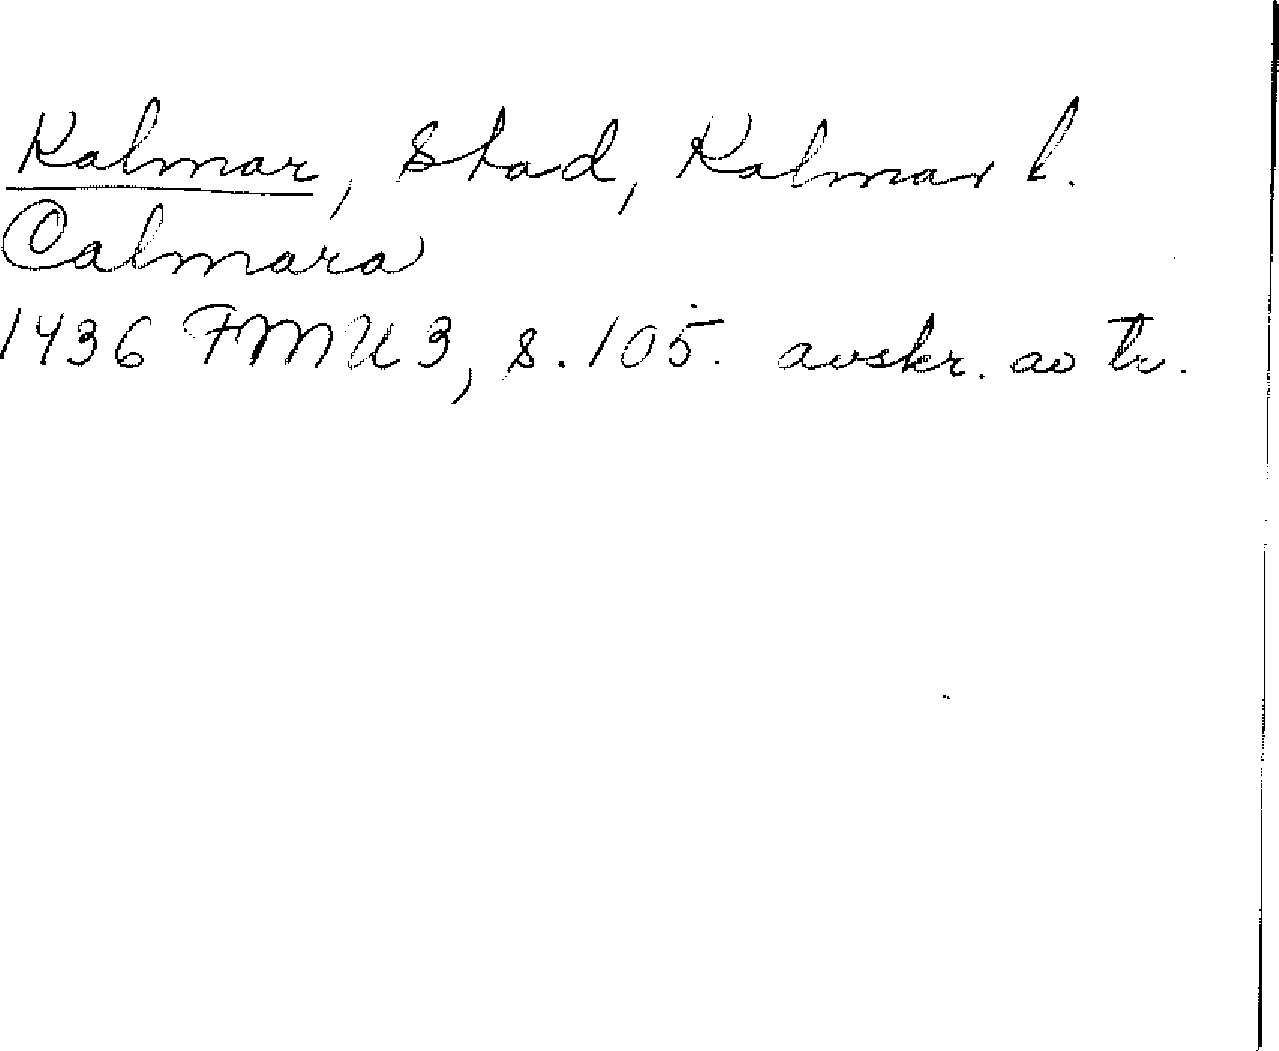 Kalmar, Stad, Kalmar l.
Calmara
1436 FMU 3, s. 105. avskr. av tr.